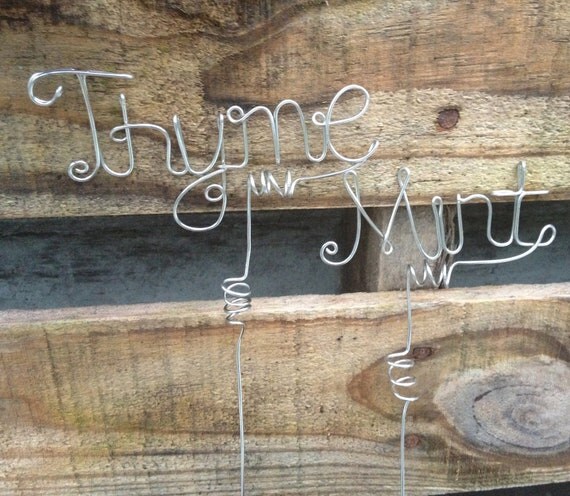 Thyme
Mint